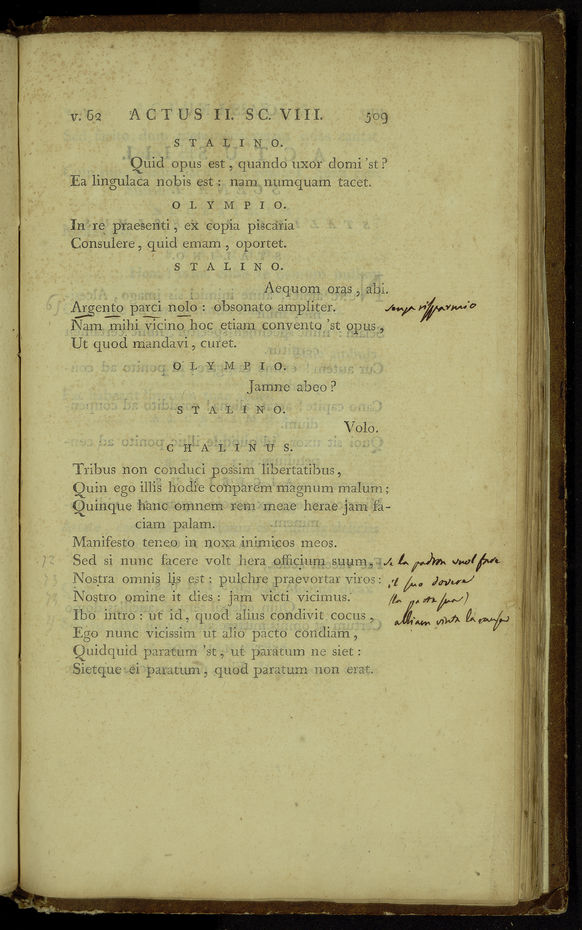 v. 62 ACTUS II. SC. VIII. 509
STALINO.
Quid opus est, quando uxor domi 'st?
Ea lingulaca nobis est: nam numquam tacet.
OLYMPIO.
In re praesenti, ex copia piscaria
Consulere, quid emam, oportet.
STALINO.
Aequom oras, abi.
65 Argento parci nolo: obsonato ampliter. senza risparmio
Nam mihi vicino hoc etiam convento 'st opus,
Ut quod mandavi, curet.
OLYMPIO.
Jamne abeo?
STALINO.
Volo.
CHALINUS.
Tribus non conduci possim libertatibus,
Quin ego illis hodie conparem magnum malum;
Quinque hanc omnem rem meae herae jam fa-
ciam palam.
Manifesto teneo in noxa inimicos meos.
72 Sed si nunc facere volt hera officium suum, se la padrona vuol fare
73 Nostra omnis lis est: pulchre praevortar viros: il suo dovere
Nostro omine it dies: jam victi vicimus. (la parte sua)
Ibo intro: ut id, quod alius condivit cocus, abbiam vinta la causa
Ego nunc vicissim ut alio pacto condiam,
Quidquid paratum 'st, ut paratum ne siet:
Sietque ei paratum, quod paratum non erat.